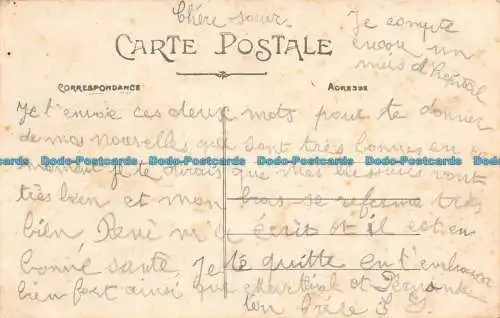 Chère sœur.
Je compte
encore un
mois d'hôpital
CARTE POSTALE
CORRESPONDANCE
ADRESSE
Je t'envoie ces deux mots pour te donner
de mes nouvelles qui sont très bonnes en ce
moment je te dirais que mes blessures vont
très bien et mon bras se referme très
bien René m'a écrit et il est en
bonne santé. Je te quitte en t'embrassant
bien fort ainsi que Martial et Fernande
ton frère J G.
Postcards Postcards Postcards Postcards Postcards Postcards Postcards